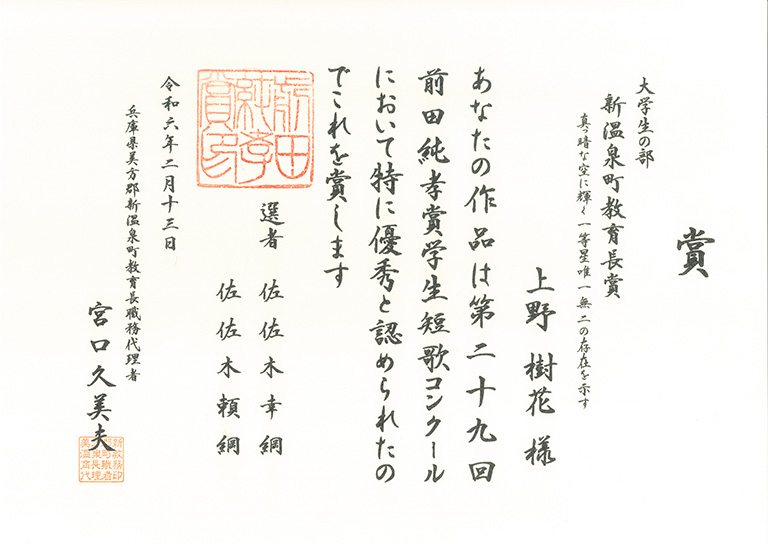 賞
大学生の部
新温泉町教育長賞
真っ暗な空に輝く一等星唯一無二の存在を示す
上野 樹花 様
あなたの作品は第二十九回
前田純孝賞学生短歌コンクール
において特に優秀と認められたの
でこれを賞します
選者 佐佐木幸綱
佐佐木頼綱
前田
純孝
賞印
令和六年二月十三日
兵庫県美方郡新温泉町教育長職務代理者
宮口久美夫